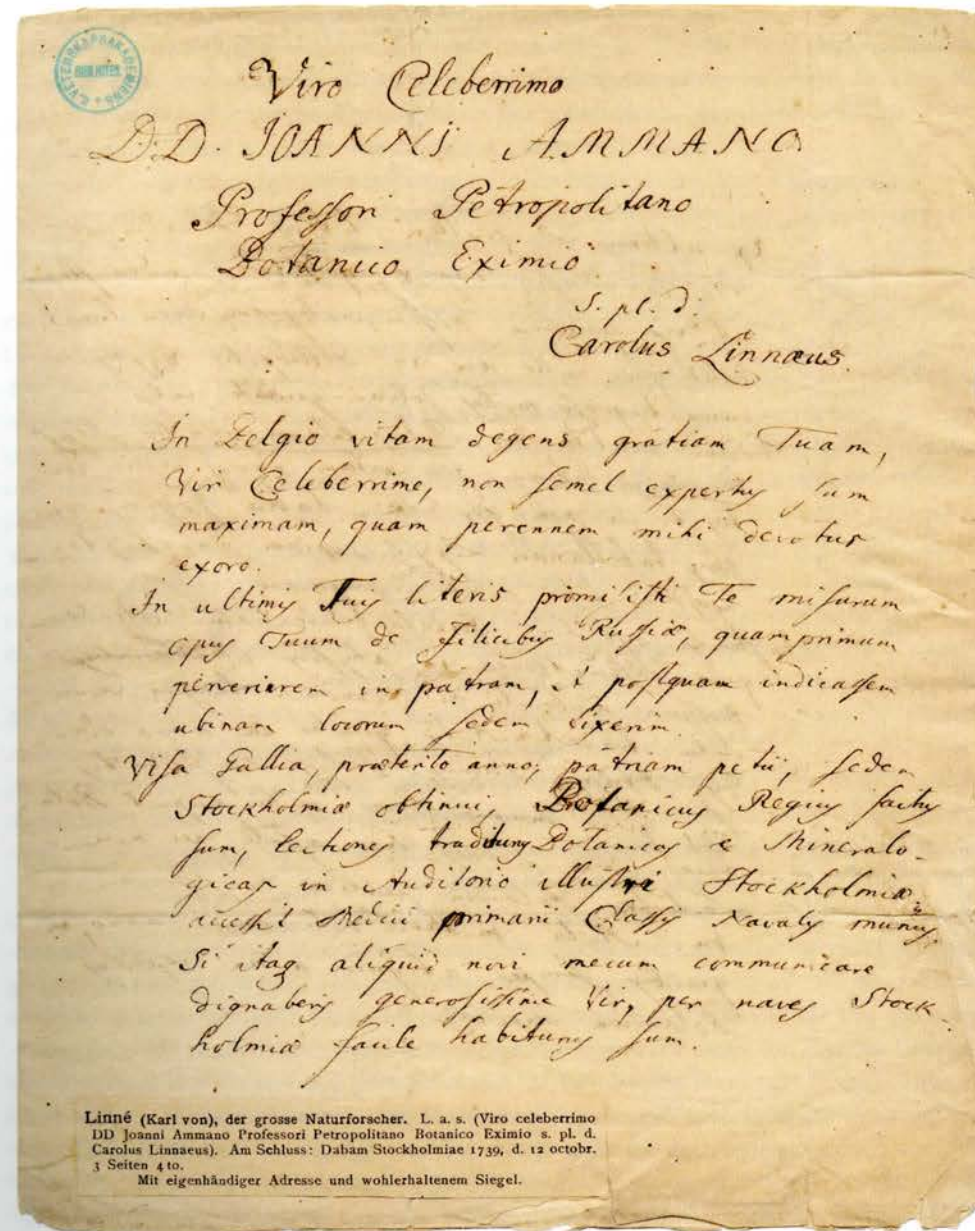 K. VETENSKAPSAKADEMIENS
BIBLIOTEK
Viro Celeberrimo
D.D. JOANNI AMMANO
Professori Petropolitano
Botanico Eximio
S. pl. d.
Carolus Linnæus.
In Belgio vitam degens gratiam Tuam,
Vir Celeberrime, non semel expertus sum
maximam, quam perennem mihi devotus
exoro.
In ultimis Tuis literis promisisti Te missurum
opus Tuum de Filicibus Russiæ, quam primum
pervenirem in patriam, et postquam indicassem
ubinam locorum sedem fixerim.
Visa Gallia, præterito anno, patriam petii, sedem
Stockholmiæ obtinui, Botanicus Regius factus
sum, lectiones traditurus Botanicas & Mineralo-
gicas in Auditorio illustri Stockholmiæ.
accessit Medici primarii Classis Navalis munus.
Si itaq aliquid novi mecum communicare
dignaberis generosissime Vir, per naves Stock-
holmiæ facile habiturus sum.
Linné (Karl von), der grosse Naturforscher. L. a. s. (Viro celeberrimo
DD Joanni Ammano Professori Petropolitano Botanico Eximio s. pl. d.
Carolus Linnaeus). Am Schluss: Dabam Stockholmiae 1739, d. 12 octobr.
3 Seiten 4to.
Mit eigenhändiger Adresse und wohlerhaltenem Siegel.